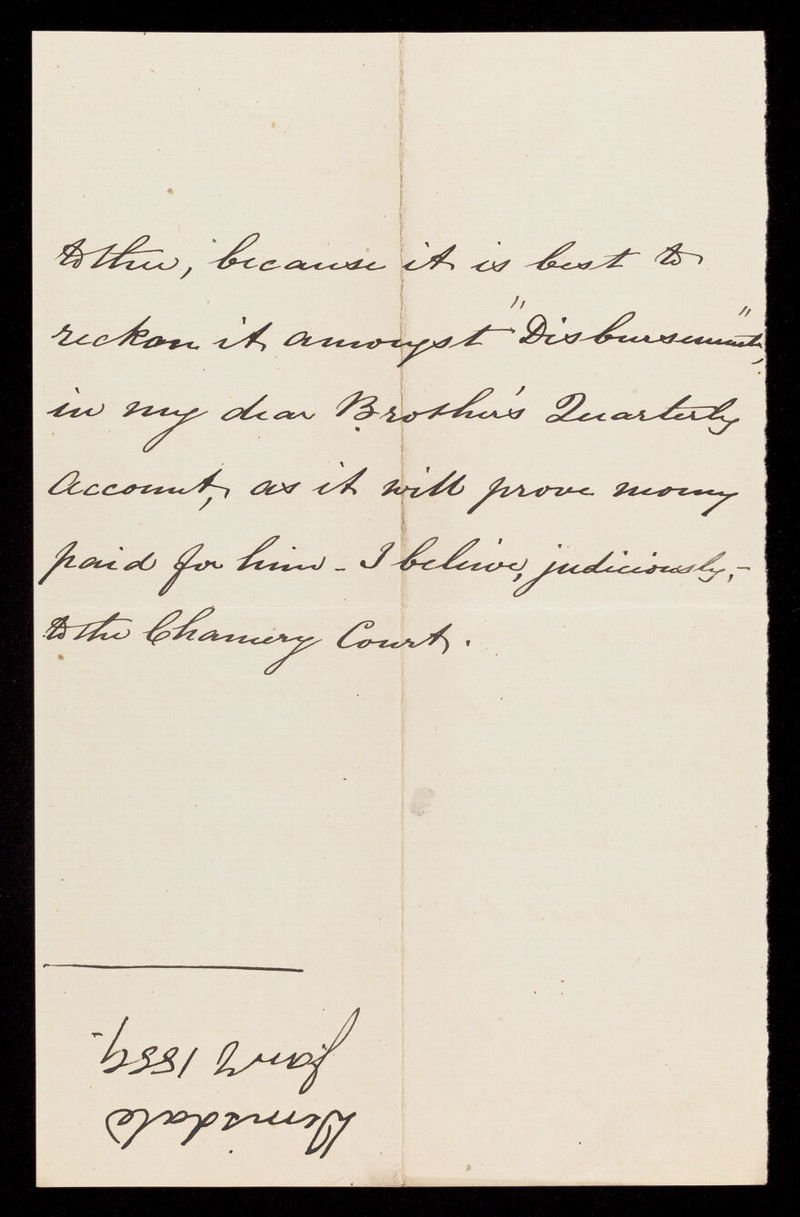 to thee, because it is best to
reckon it amongst "Disbursements",
in my dear Brother's Quarterly
Account, as it will prove money
paid for him - I believe, judiciously, -
to the Chancery Court.
Dimsdale
Jany 1889.